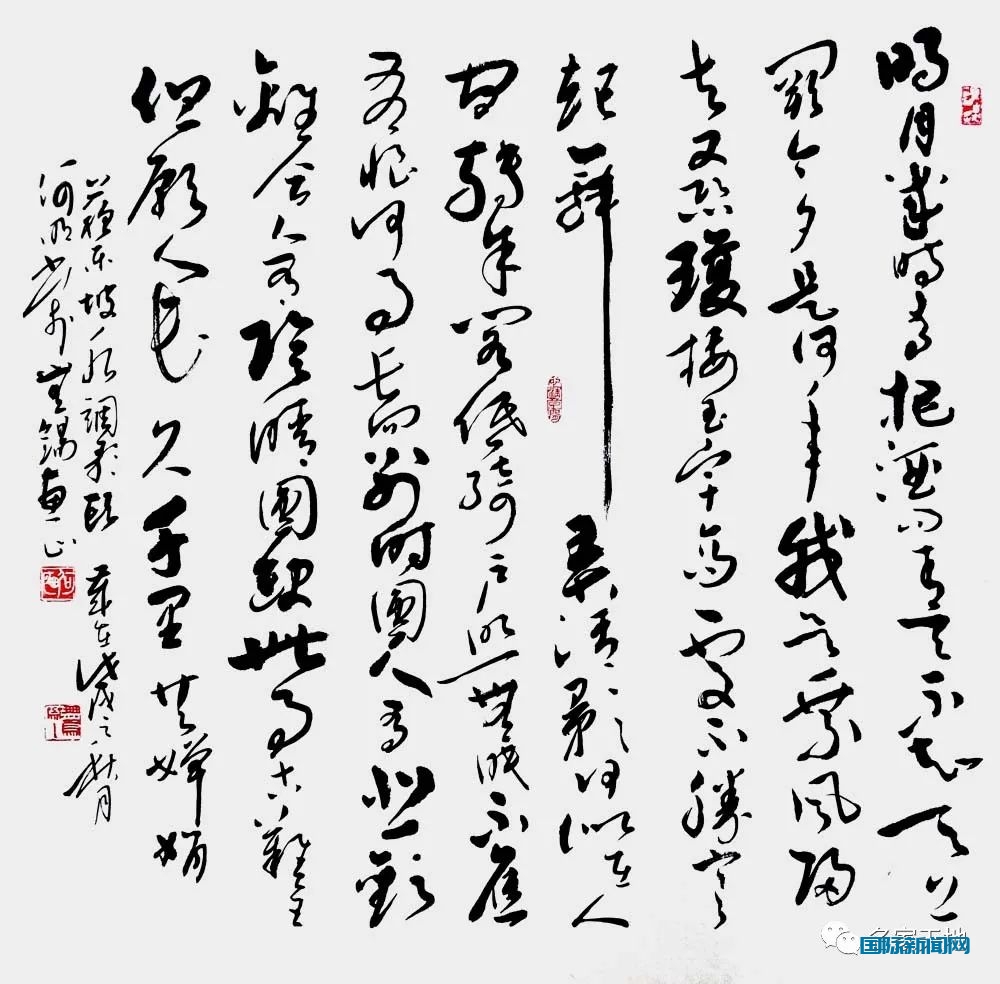 明月幾時有把酒問青天不知天上
闕今夕是何年我欲乘風歸
去又恐瓊樓玉宇高處不勝寒
起舞弄清影何似在人
間轉朱閣低綺戶照無眠不應
有恨何事長向別時圓人有悲歡
離合月有陰晴圓缺此事古難全
但願人長久千里共嬋娟
蘇東坡水調歌頭 歲在戊戌之秋月
名家天地
国际新闻网